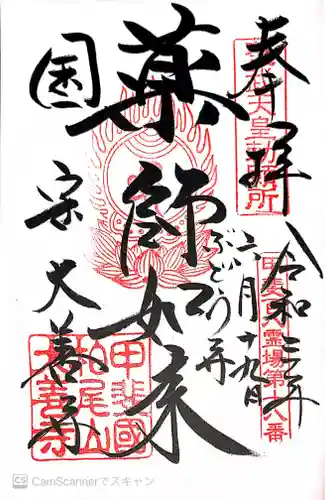 奉拝
天皇勅願所
令和三年
六月十九日
霊場第十八番
薬師如来
ぶどう寺
国宝 大善寺
甲斐國
柏尾山
大善寺
CS CamScannerでスキャン